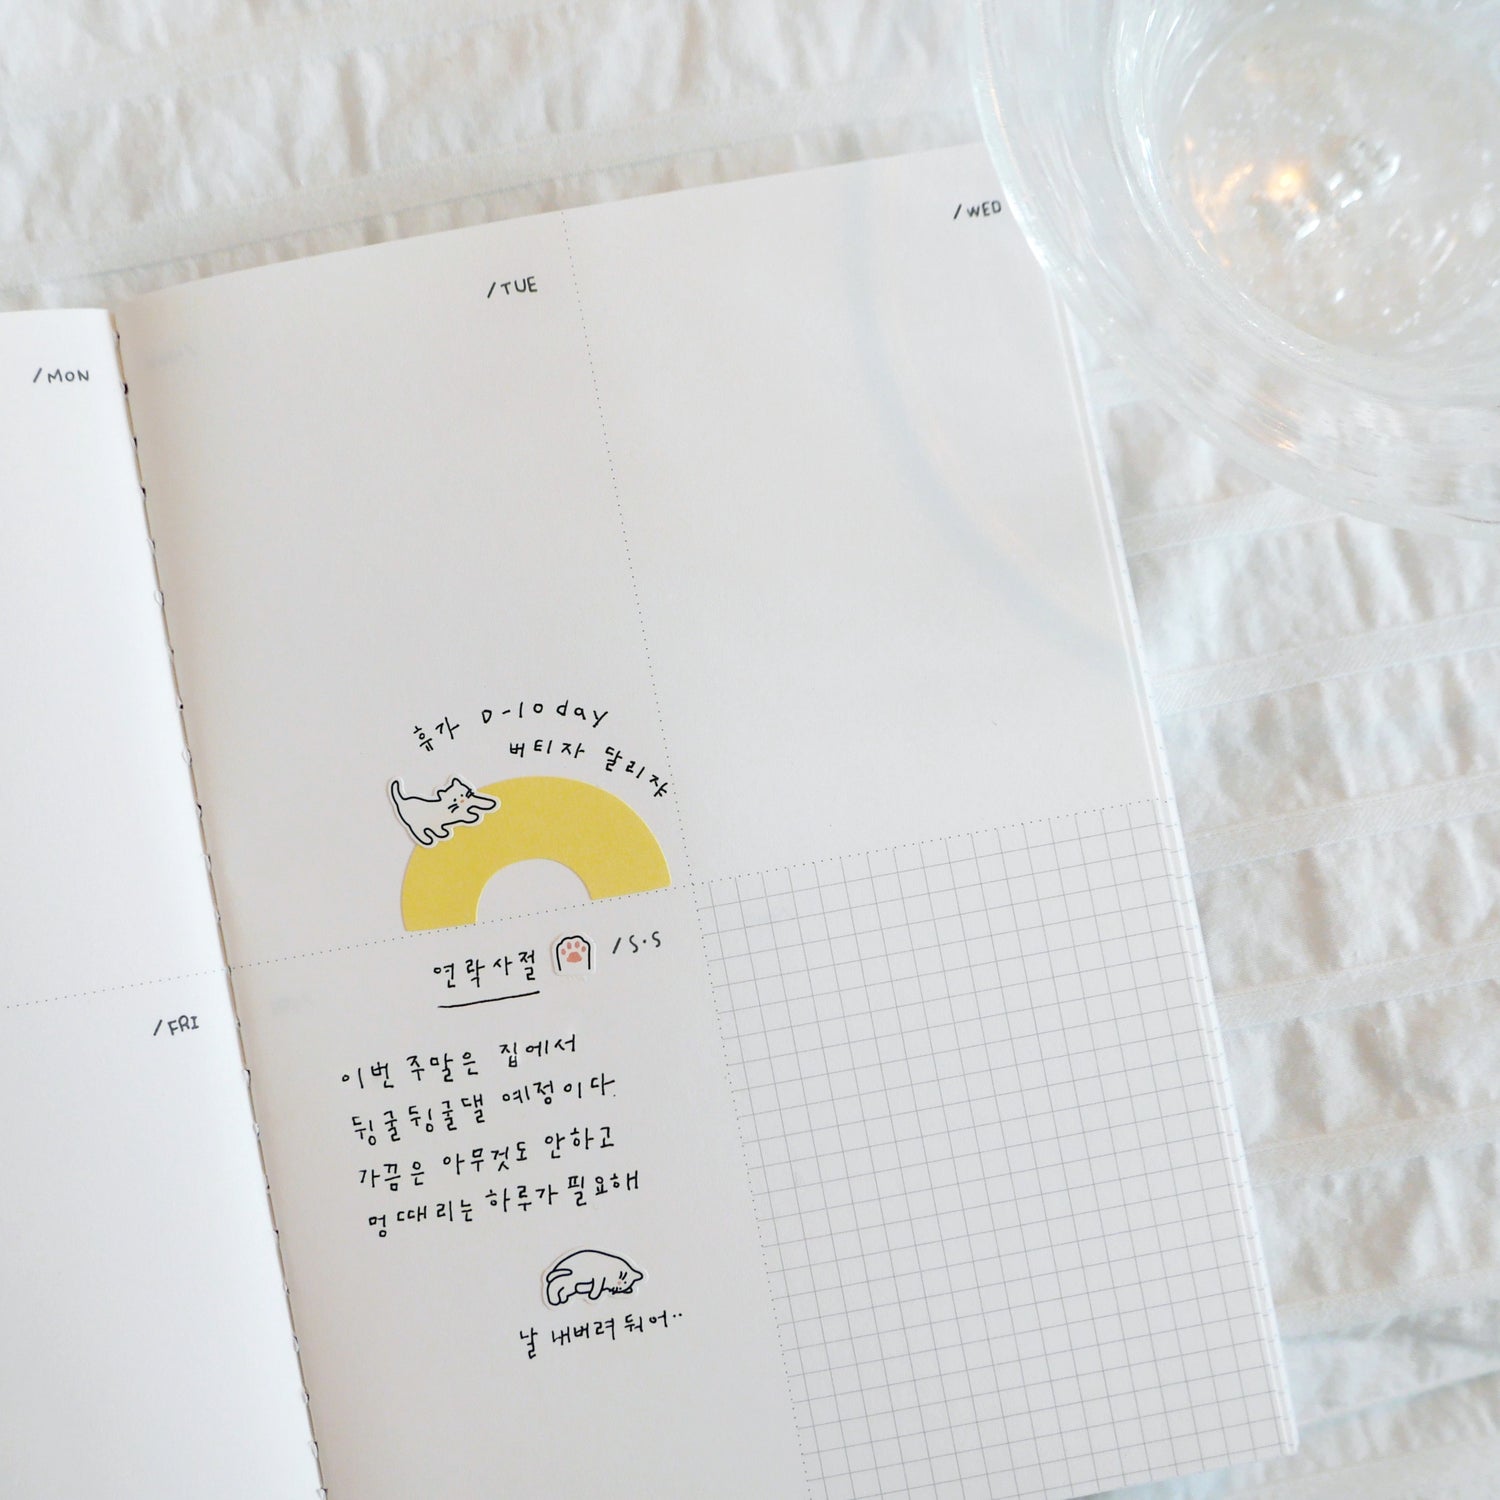 /MON
/TUE
/WED
휴가 D-10day
버티자 달리쟈
연락사절
/S·S
/FRI
이번 주말은 집에서
뒹굴뒹굴댈 예정이다.
가끔은 아무것도 안하고
멍때리는 하루가 필요해
날 내버려 둬어..